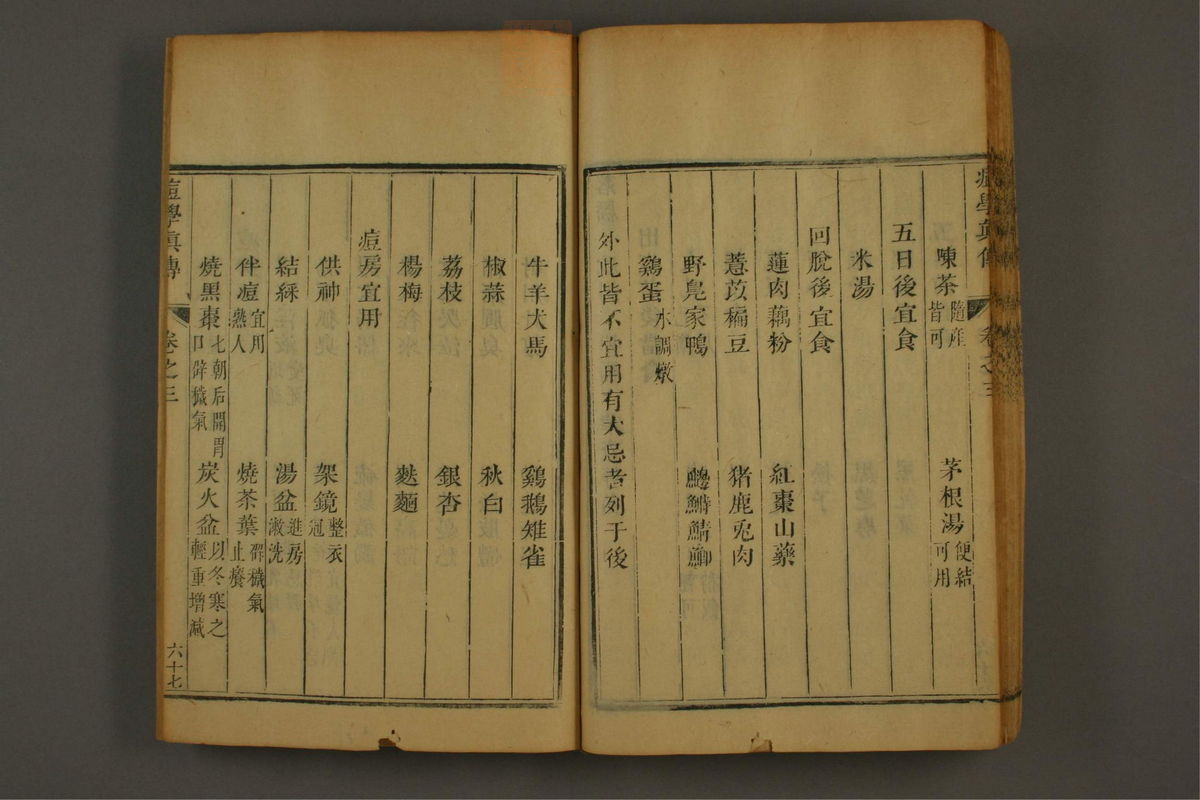 痘學真傳 卷之三
陳茶 隨産皆可 茅根湯 便結可用
五日後宜食
米湯
回脫後宜食
蓮肉藕粉 紅棗山藥
薏苡稨豆 猪鹿兎肉
野鳧家鴨
鷄蛋 水調燉
外此皆不宜用有大忌者列于後
牛羊犬馬 鷄鵝雉雀
椒蒜 秋白
荔枝 銀杏
楊梅 麩麵
痘房宜用
供神 架鏡 整衣冠
結綵 湯盆 進房漱洗
伴痘 宜用熟人 燒茶葉 辟穢氣止癢
燒黑棗 七朝后開胃口辟穢氣 炭火盆 以冬寒之輕重增減
痘學真傳 卷之三 六十七